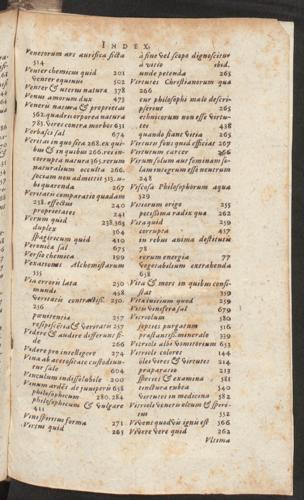 INDEX.
Venetorum ars aurifica ficta
514
Venter chemicum quid 201
Venter equinus 502
Venter & uterus natura 378
Venus amorum dux 473
Veneris natura & proprietas
562. qualis corporea natura
785. vires contra morbos 631
Verbasci sal 674
Veritas in quo sica 268. ex qui-
bus & in quibus 266. rei in-
corrupta natura 365. rerum
naturalium occulta 266.
socium non admittit 513. u-
bi quærenda 267
Veritatis comparatio quadam
238. effectus 240
proprietates 241
Verum quid 238.363
duplex 364
spagiricum quid 410
Veronica sal 675
Versio chemica 399
Vexationes Alchemistarum
555
Via erroris lata 250
mundi 458
veritatis contractiss. 250.
256
pœnitentia 257
respiscentia & veritatis 257
Videre & audire differunt
266
Videre pro intelligere 274
Vina ab acetositate custodiun-
tur sale 604
Vinculum indissolubile 200
Vinum ardēs de pauperis 658
philosophicum 280. 284
philosophicum & vulgare
411
Vini spiritus forma 271
Virens quid 265
à fine vel scopo dignoscitur
à vitio ibid.
unde petenda 265
Virtutes Christianorum qua
266
cur philosophis male descri-
pserint 265
ethnicorum non esse virtu-
tes 438
quando fiant vitia 265
Virtutis fons quid efficiat 267
Virtutum carcer 366
Virum solum aut feminam so-
lam integrum esse neutrum
248
Viscosa Philosophorum aqua
529
Visorum origo 255
potissima radix qua 262
Vita quid 259
corrupta 457
in rebus anima destitutis
78
rerum energia 77
vegetabilium extrahenda
638
Vita & mors in quibus consi-
stat 359
Vita vinium quid 259
Vitis vinifera sal 679
Vitriolum 580
septies purgatum 516
præstantiss. minerale 339
Vitriolis albo vomitorium 653
Vitriolis colores 144
oleo vires & virtutes 214
præparatio 213
species & examina 581
tinctura rubea 540
virtutes in medicina 582
Vitriolis veneris oleum & spiri-
tus 552
Vivens quod vis ignis est 366
Vivere vere quid 262
Vltima